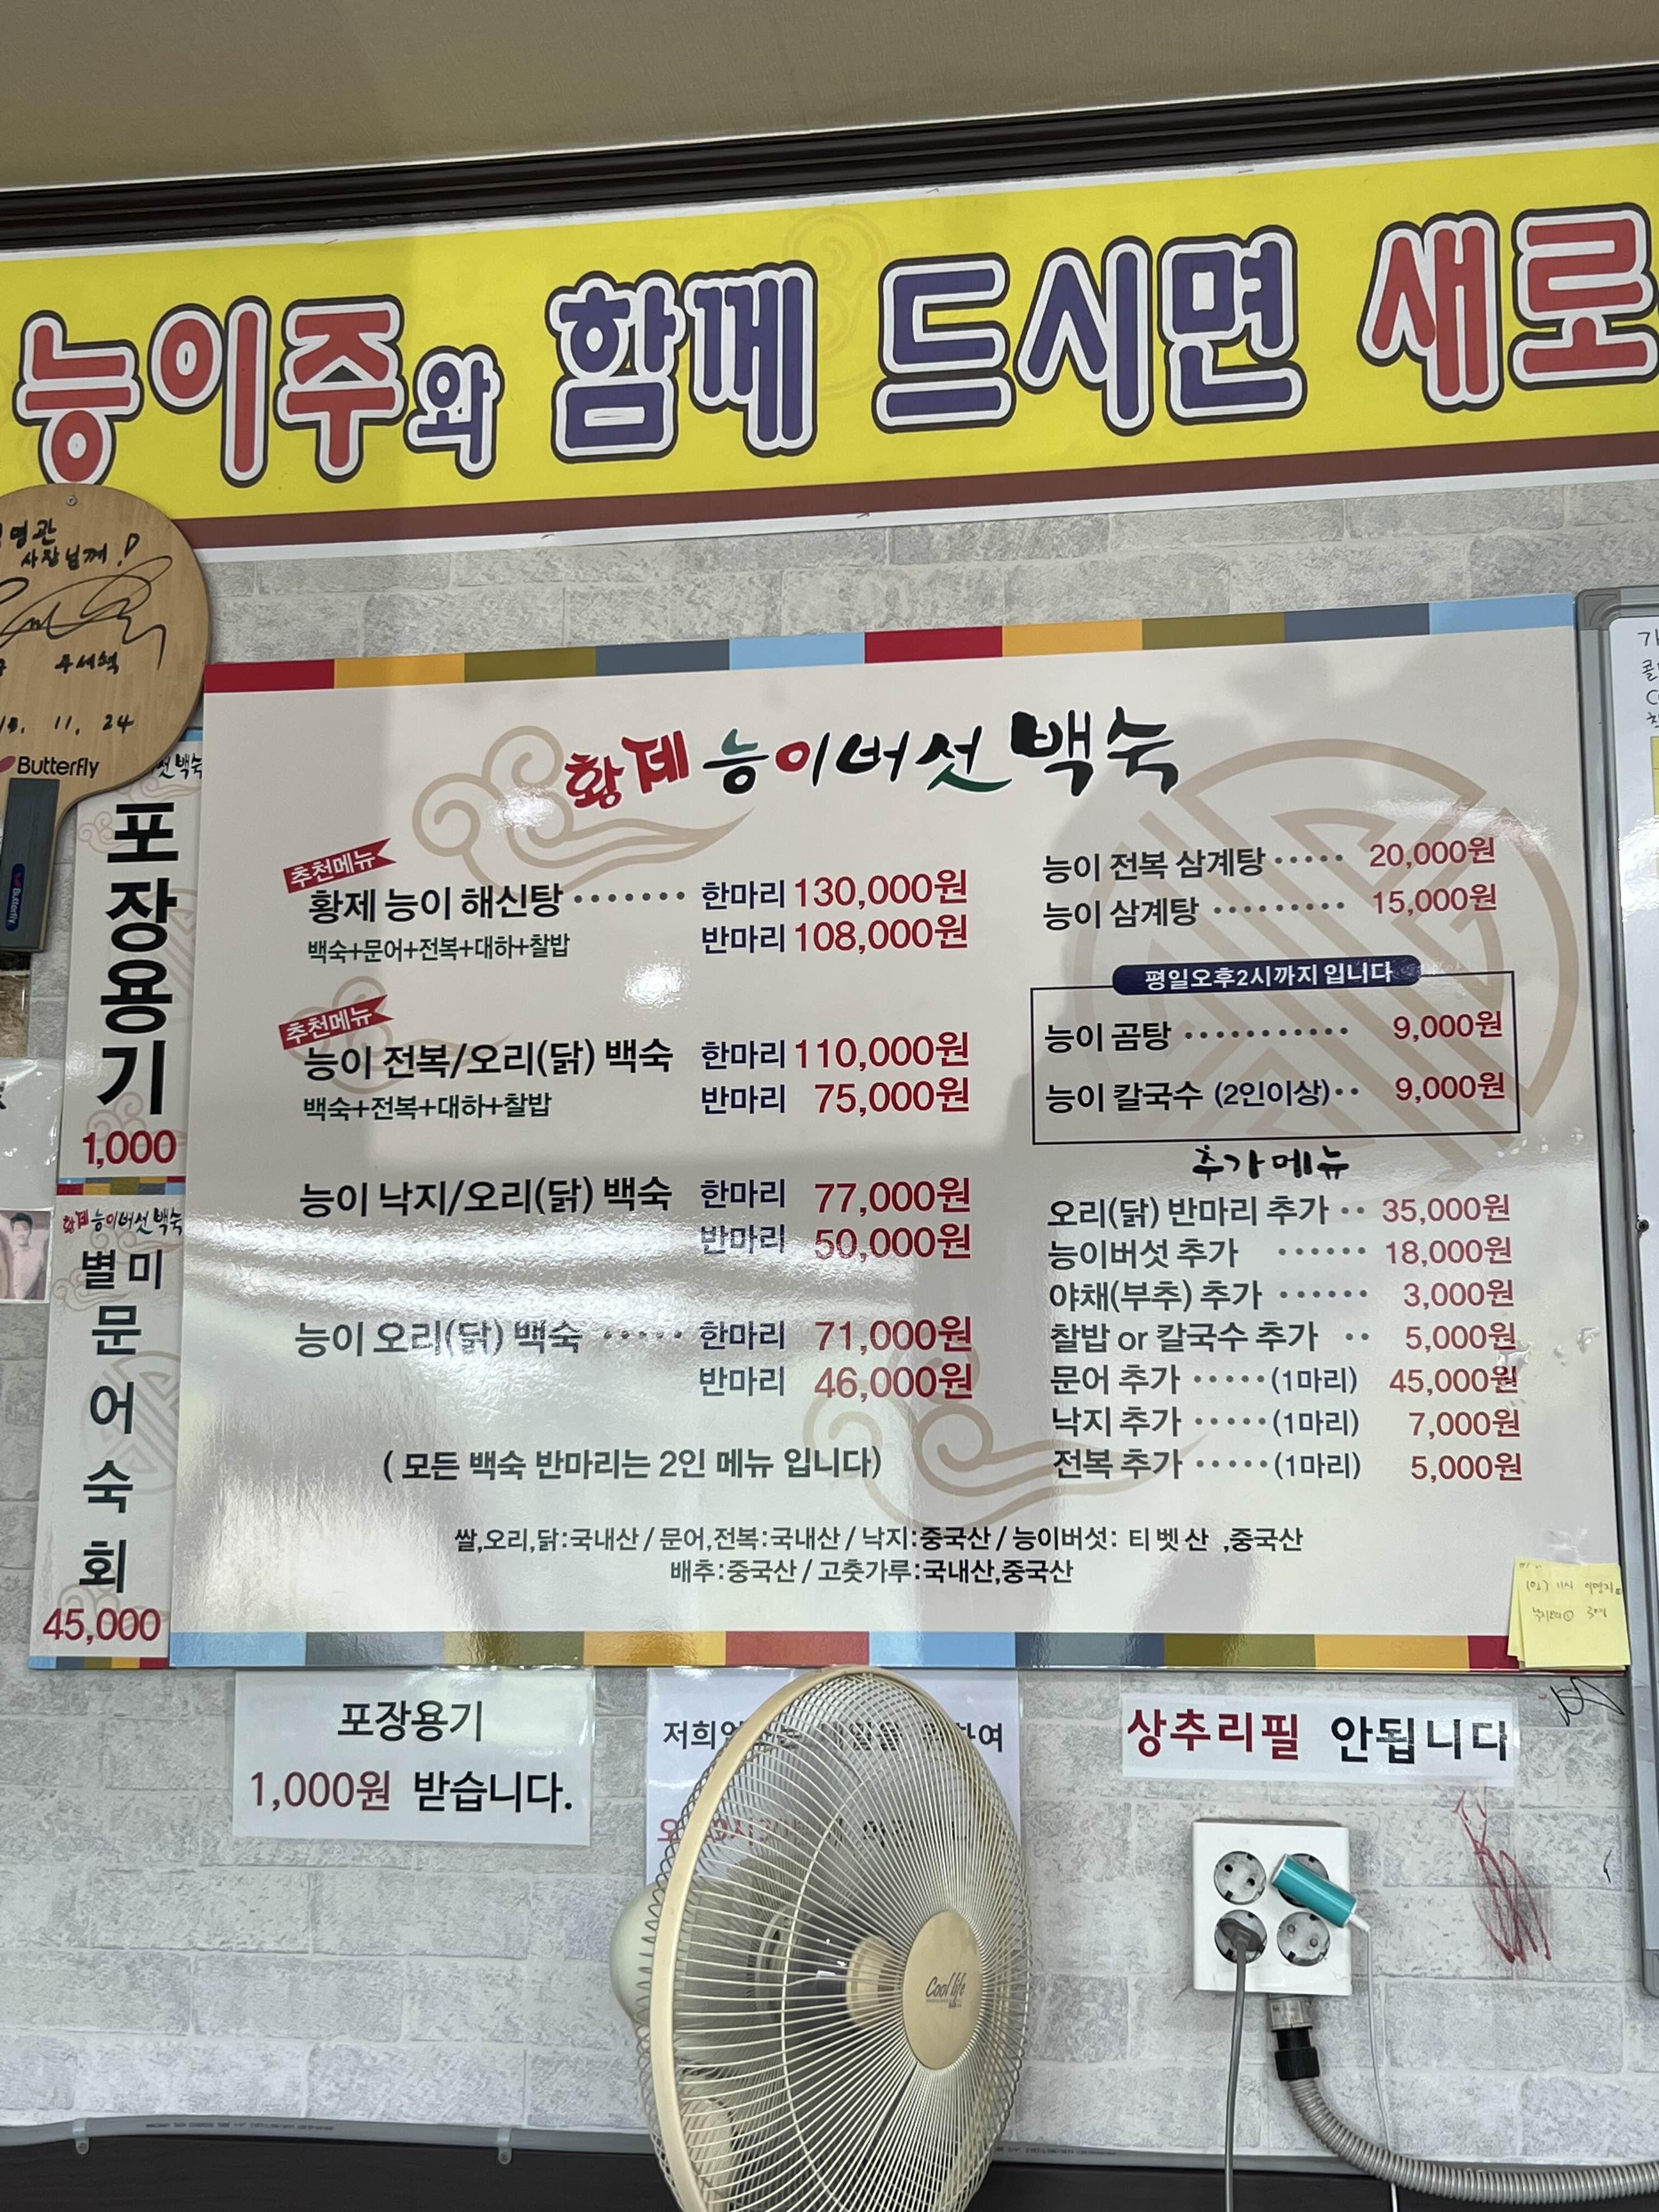 능이주와 함께 드시면 새로
명관
사장님께!
11, 24
Butterfly
Butterfly
포장용기
1,000
황제 능이버섯 백숙
별미
문어숙회
45,000
황제 능이버섯 백숙
추천메뉴
황제 능이 해신탕 ······· 한마리 130,000원
백숙+문어+전복+대하+찰밥 반마리 108,000원
추천메뉴
능이 전복/오리(닭) 백숙 한마리 110,000원
백숙+전복+대하+찰밥 반마리 75,000원
능이 낙지/오리(닭) 백숙 한마리 77,000원
반마리 50,000원
능이 오리(닭) 백숙 ····· 한마리 71,000원
반마리 46,000원
( 모든 백숙 반마리는 2인 메뉴 입니다)
능이 전복 삼계탕 ····· 20,000원
능이 삼계탕 ········· 15,000원
평일오후2시까지 입니다
능이 곰탕 ··········· 9,000원
능이 칼국수 (2인이상)·· 9,000원
추가메뉴
오리(닭) 반마리 추가 ·· 35,000원
능이버섯 추가 ······ 18,000원
야채(부추) 추가 ······ 3,000원
찰밥 or 칼국수 추가 ·· 5,000원
문어 추가 ·····(1마리) 45,000원
낙지 추가 ·····(1마리) 7,000원
전복 추가 ·····(1마리) 5,000원
쌀,오리,닭:국내산 / 문어,전복:국내산 / 낙지:중국산 / 능이버섯: 티벳산 ,중국산
배추:중국산 / 고춧가루:국내산,중국산
포장용기
1,000원 받습니다.
저희
상추리필 안됩니다
Cool life